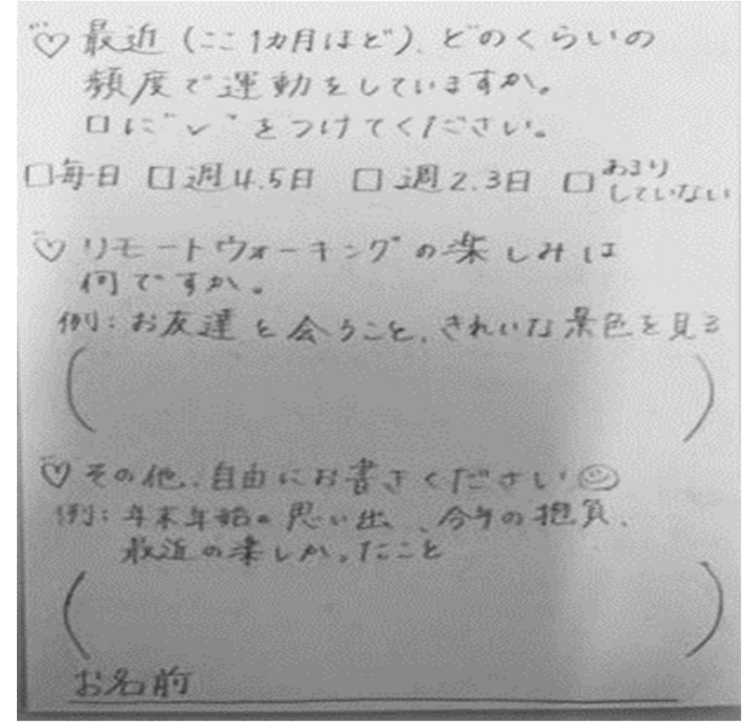 ♡最近(ここ1カ月ほど)、どのくらいの
頻度で運動をしていますか。
□に"✓"をつけてください。
□毎日 □週4.5日 □週2.3日 □あまりしていない
♡リモートウォーキングの楽しみは
何ですか。
例:お友達と会うこと、きれいな景色を見る
(　　　)
♡その他、自由にお書きください☺
例:年末年始の思い出、今年の抱負、
最近の楽しかったこと
(　　　)
お名前